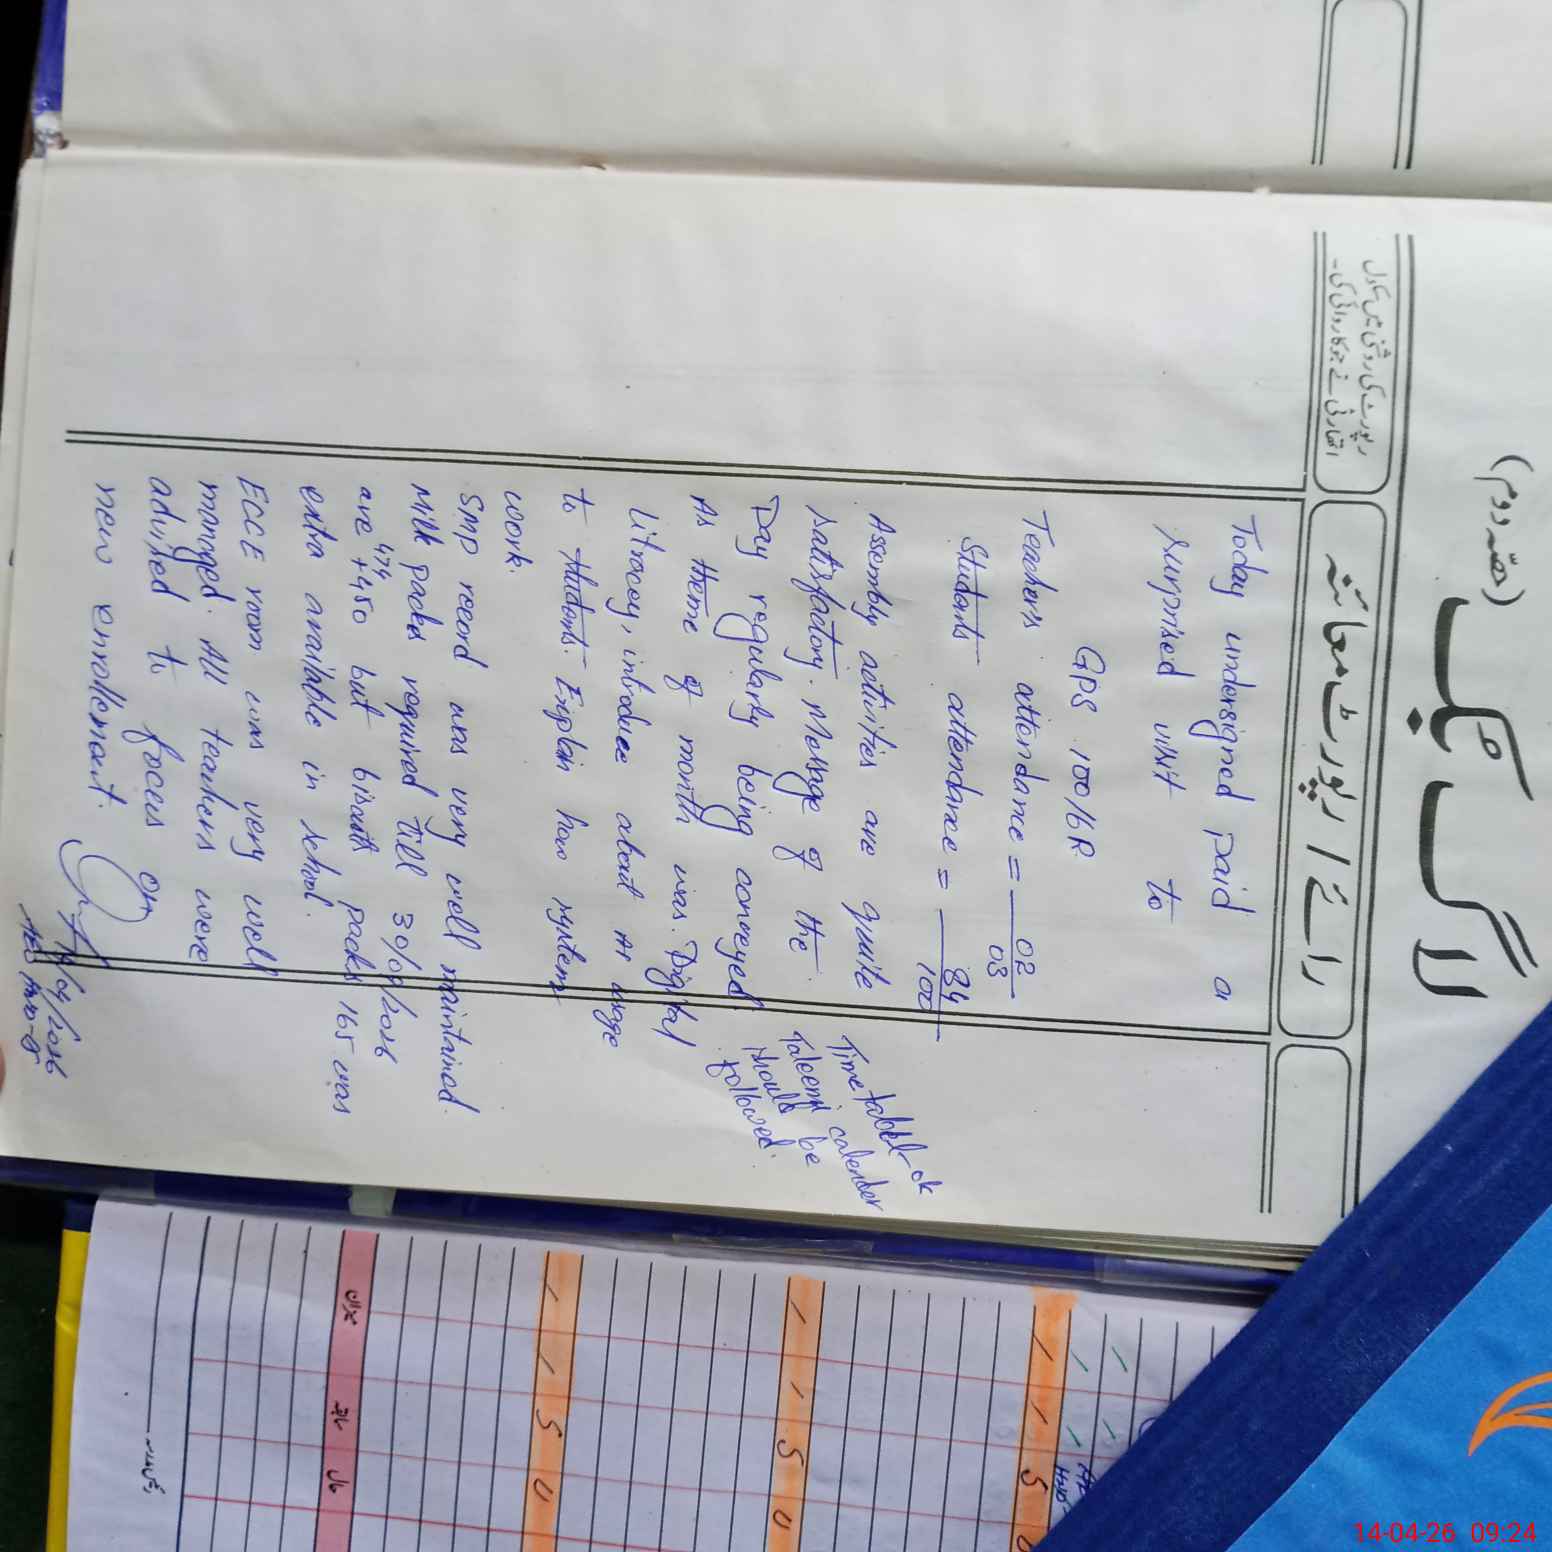 (حصّہ دوم)
لاگ بک
رپورٹ کی روشنی میں سکول
اتھارٹی نے جو کاروائی کی۔
رائے / رپورٹ معائنہ
Today undersigned paid a
surprised visit to
GPS 100/6R
Teachers attendance = 02/03
Students attendance = 84/100
Assembly activities are quite
satisfactory. Message of the
Day regularly being conveyed
As theme of month was Digital
literacy, introduce about AI usage
to students. Explain how system
work.
SMP record was very well maintained.
Milk packs required till 30/04/2026
are 474 +450 but biscuits packs 165 was
extra available in school.
ECCE room was very well
manged. All teachers were
advised to focus on
new enrollement.
14/04/2026
Time tabel- ok
Taleemi calender
should be
followed.
میزان
سابقہ
حال
1 5 0
1 1 5 0
1 1 5
14-04-26 09:24